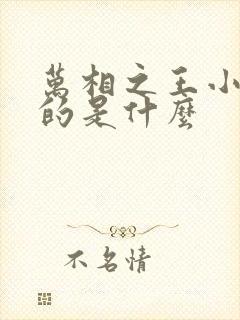 萬相之王小
的是什麼
不名情